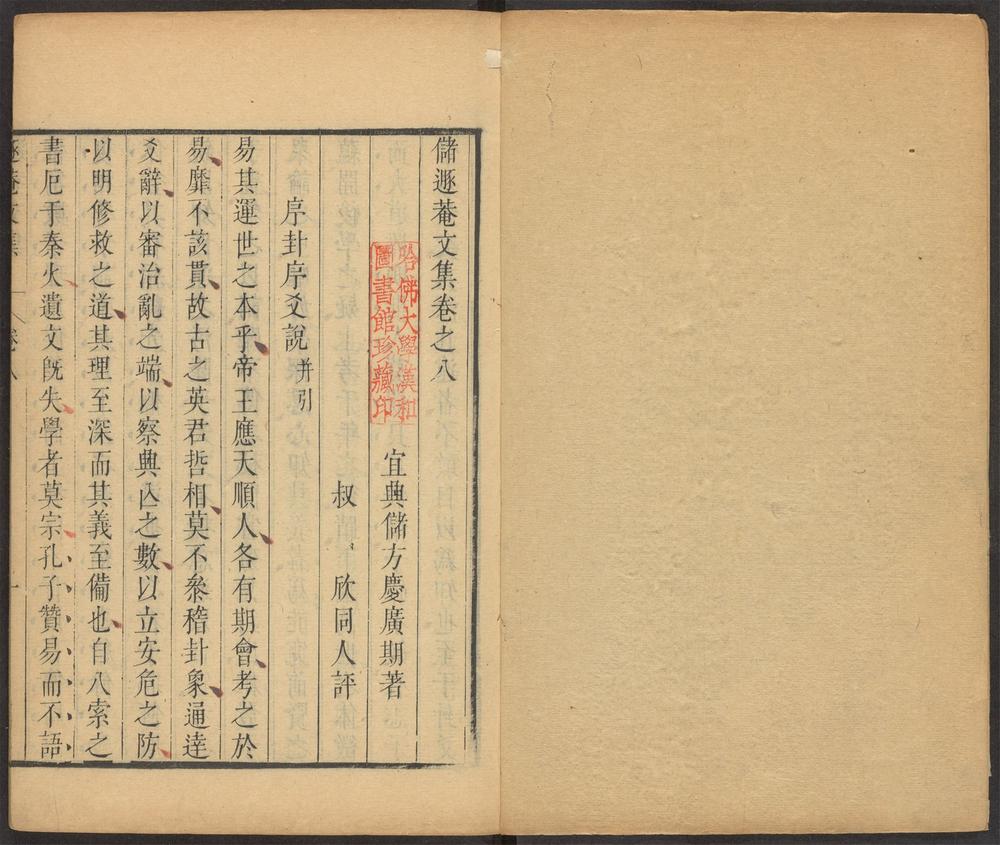 儲遯菴文集卷之八
宜興儲方慶廣期著
叔 欣同人評
序卦序爻說并引
易其運世之本乎帝王應天順人各有期會考之於
易靡不該貫故古之英君哲相莫不叅稽卦象通達
爻辭以審治亂之端以察興亾之數以立安危之防
以明修救之道其理至深而其義至備也自八索之
書厄于秦火遺文旣失學者莫宗孔子贊易而不語
哈佛大學漢和
圖書館珍藏印